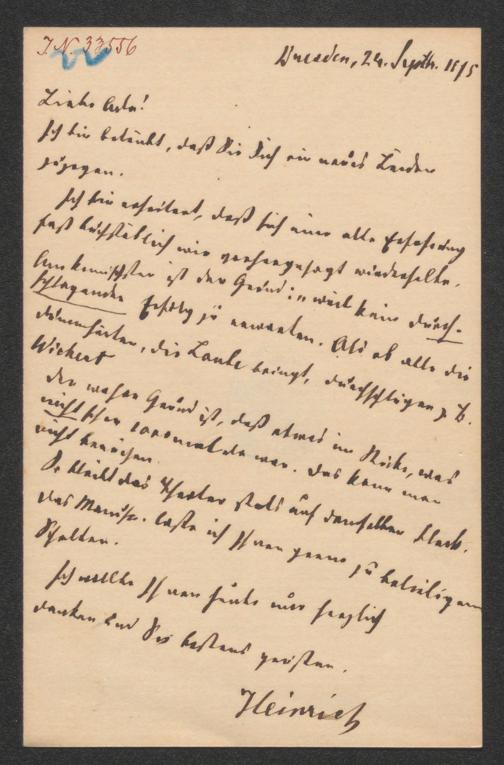 J.N. 33556
Dresden, 24. Septbr. 1875
Liebe Ada!
Ich bin betrübt, daß Sie sich ein neues Leiden
zugezogen.
Ich bin erheitert, daß sich eine alte Erfahrung
fast buchstäblich wie vorhergesagt wiederholte.
Am komischsten ist der Grund: weil kein durch-
schlagender Erfolg zu erwarten. Als ob alle die
die Laube bringt, durchschlügen z. B.
Wichert
Der wahre Grund ist, daß etwas im Stücke, was
nicht schon 100 mal da war. Das kann man
nicht brauchen.
So bleibt das Theater stets auf demselben Fleck.
Das Manusc. lasse ich Ihnen gerne zu beliebigem
Schalten.
Ich wollte Ihnen heute nur herzlich
danken und Sie bestens grüßen.
Heinrich